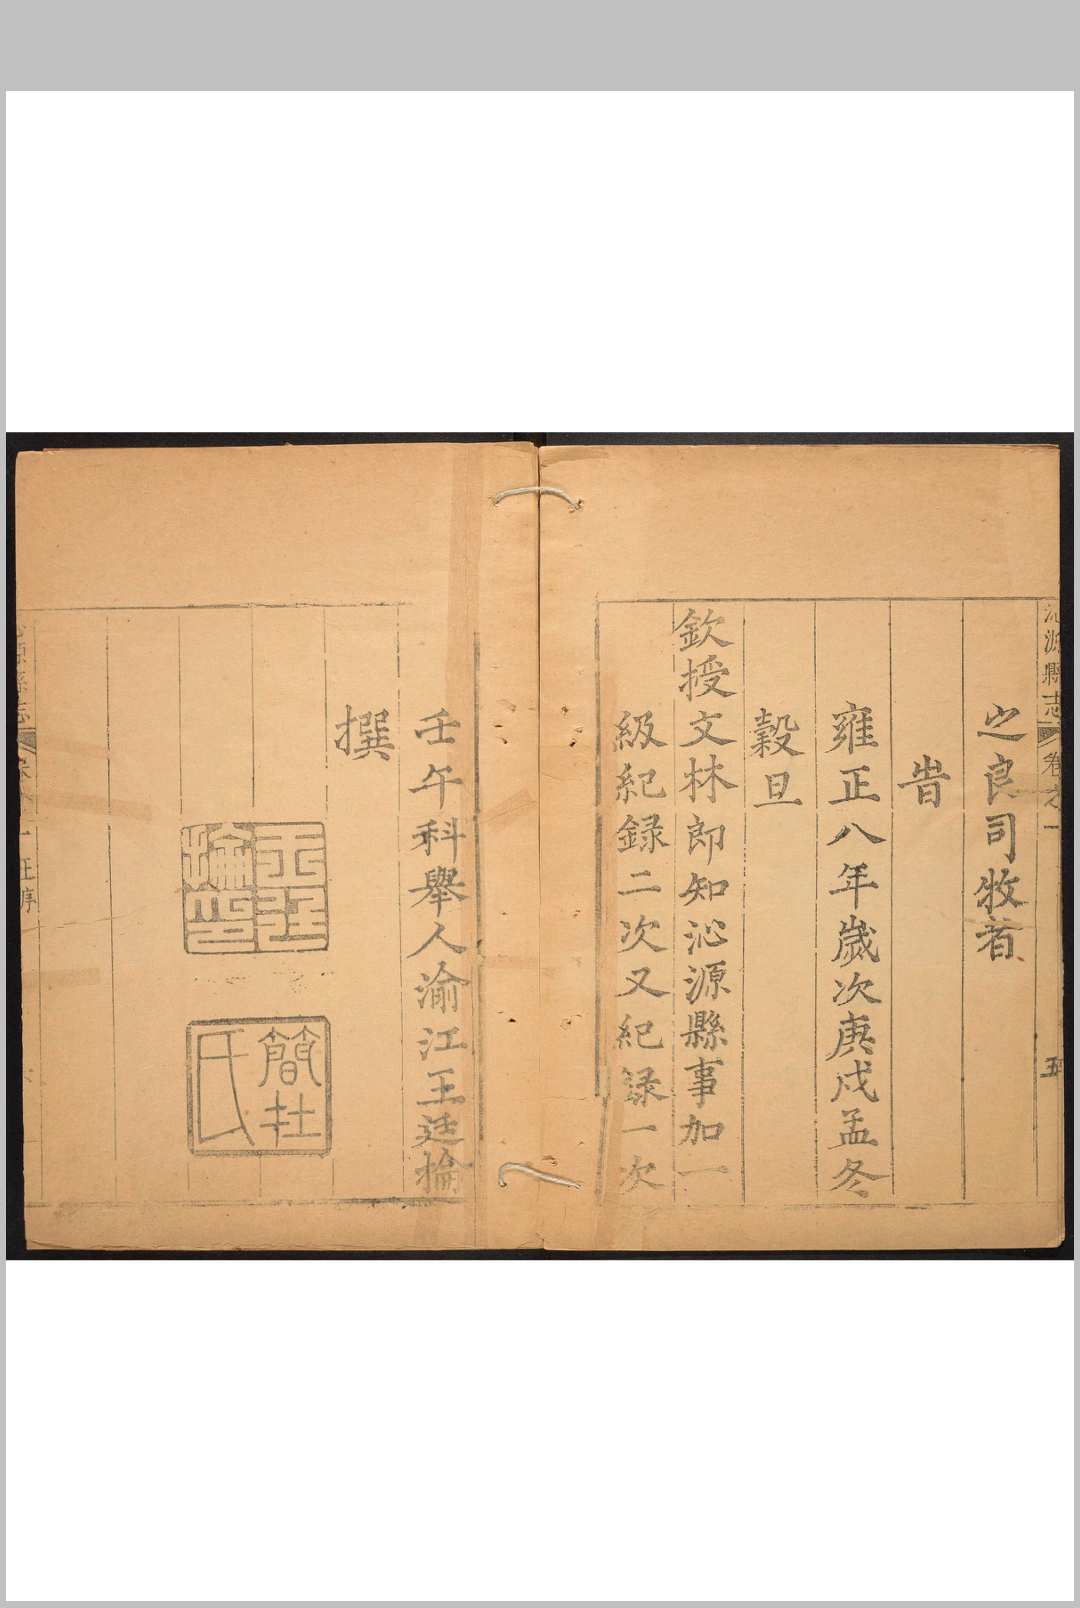 沁源縣志 卷之一 五
之良司牧者
旹
雍正八年歲次庚戌孟冬
穀旦
欽授文林郎知沁源縣事加一
級紀録二次又紀録一次
壬午科舉人渝江王廷掄
撰
王廷掄印
簡社氏
源縣志